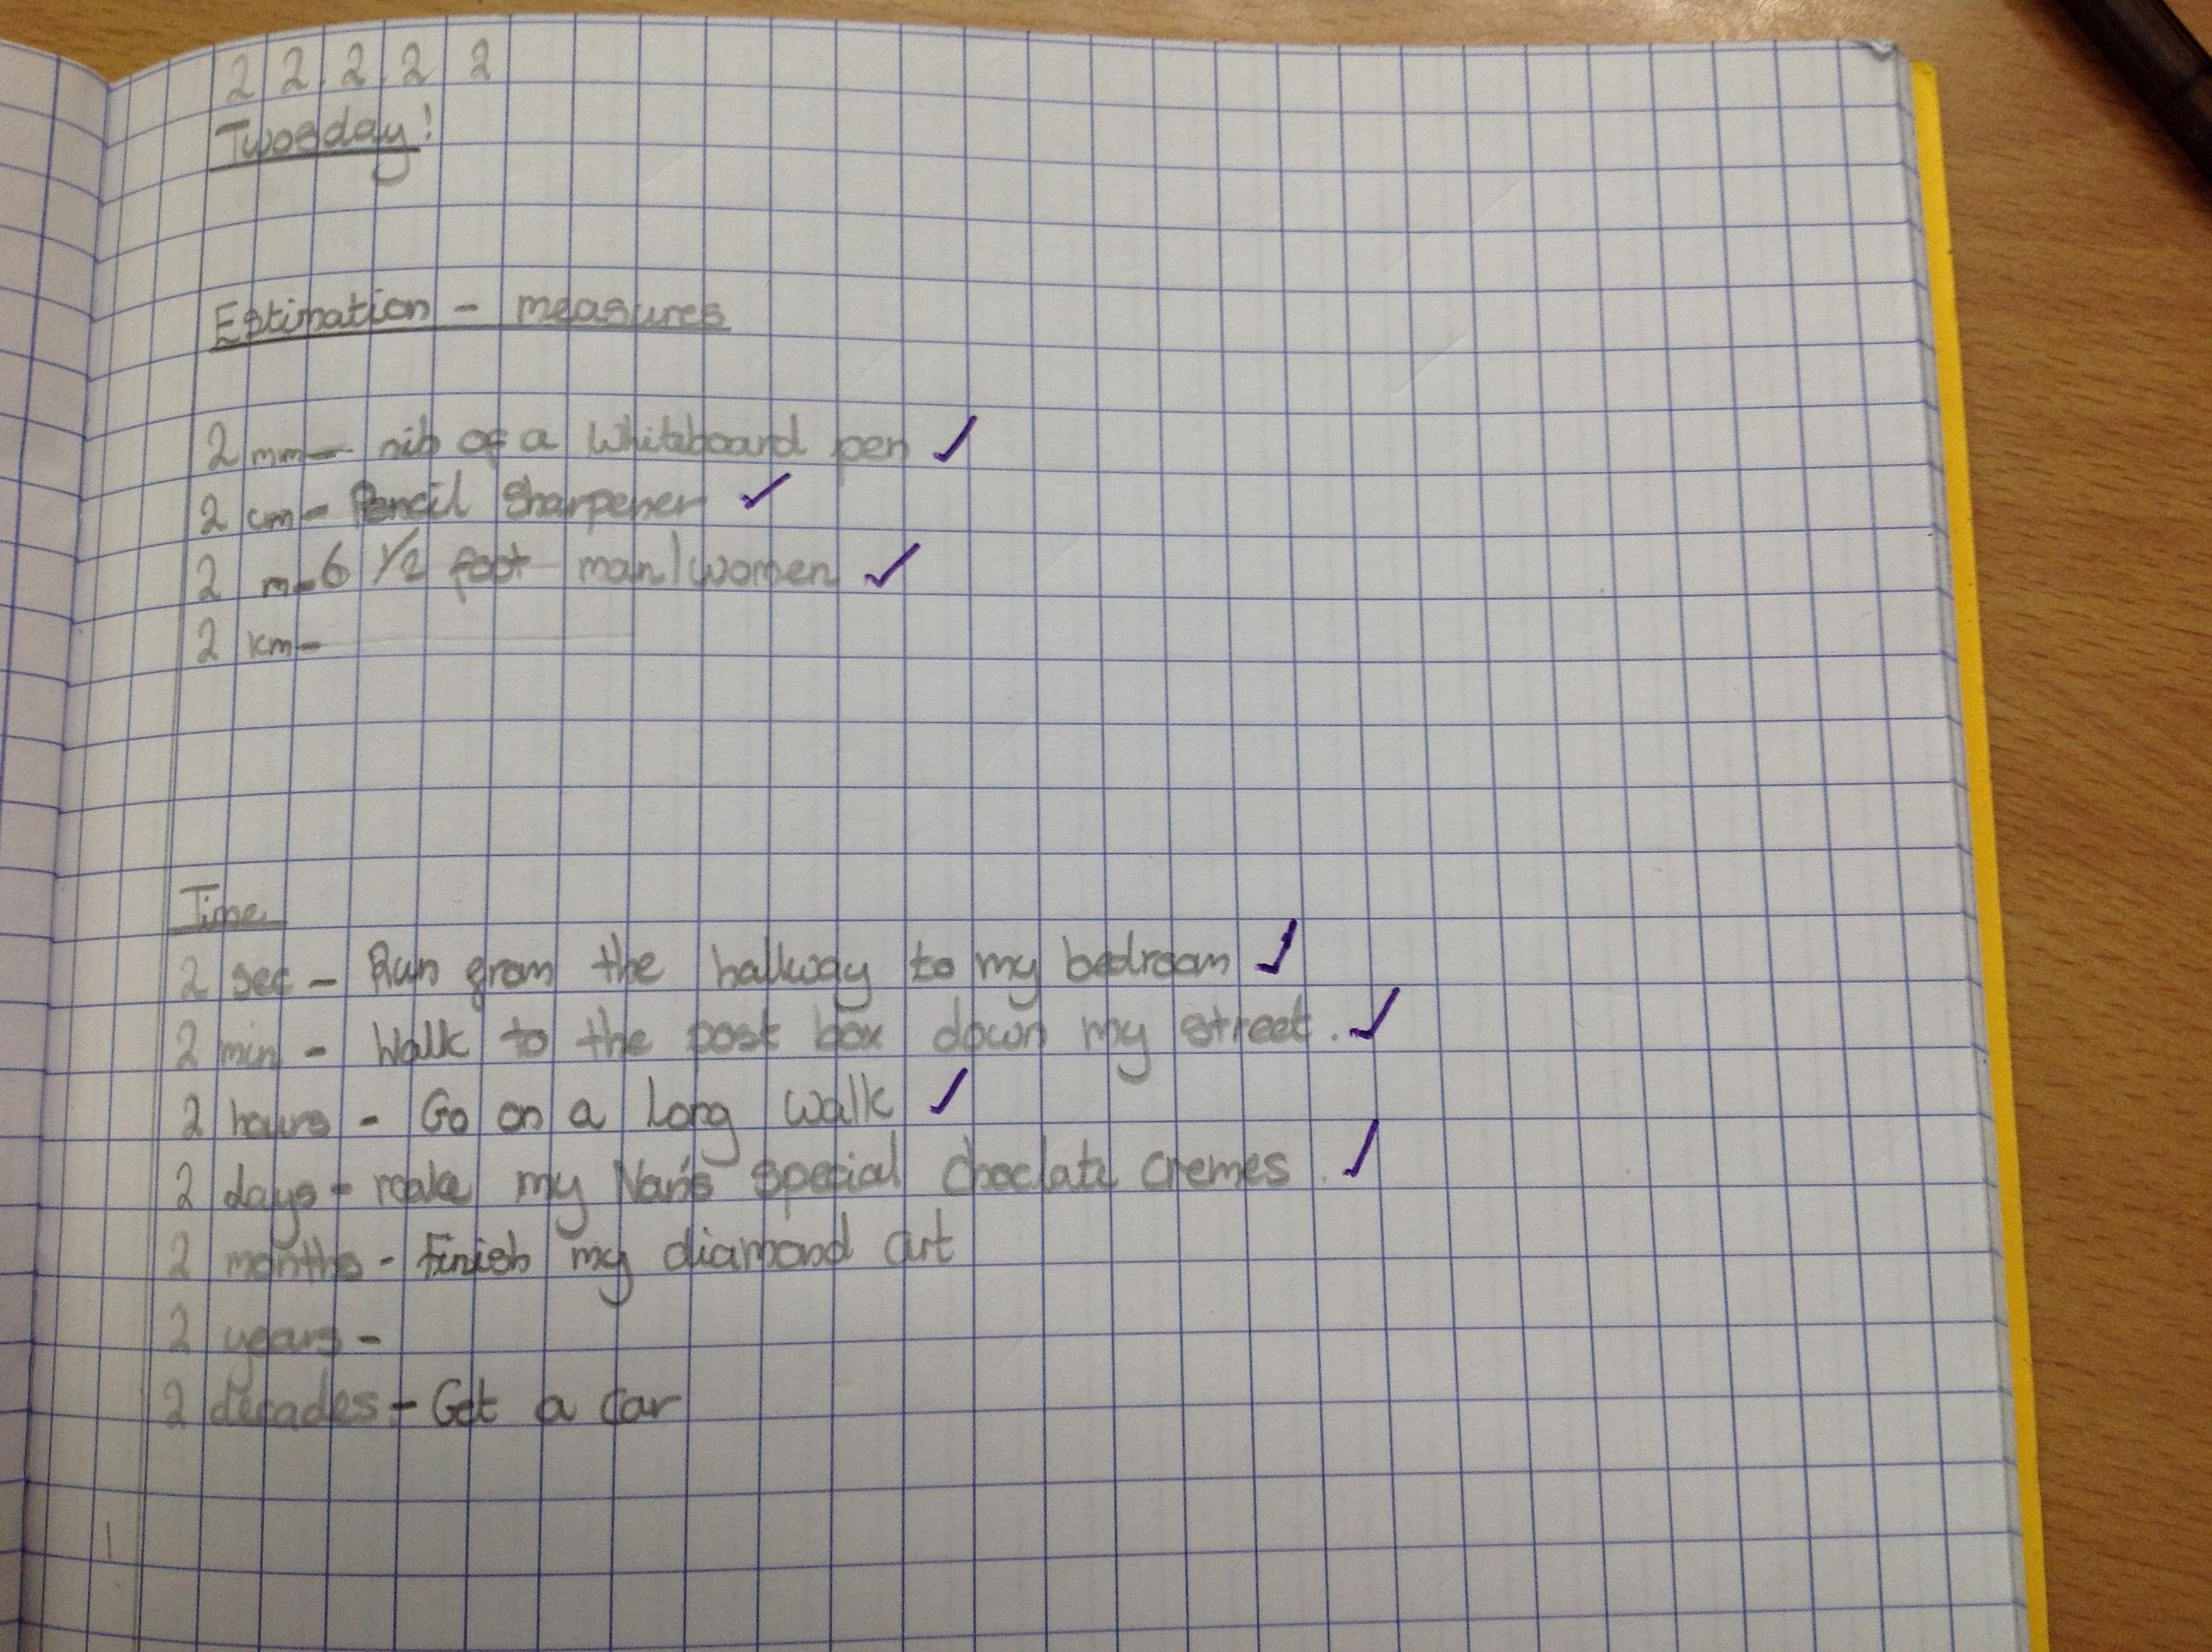 22.2.22
Twosday!
Estimation - measures
2 mm - nib of a Whiteboard pen ✓
2 cm - Pencil Sharpener ✓
2 m - 6 1/2 foot man/women ✓
2 km -
Time
2 sec - Run from the hallway to my bedroom ✓
2 min - Walk to the post box down my street. ✓
2 hours - Go on a Long walk ✓
2 days - make my Nan's special choclate cremes. ✓
2 months - Finish my diamond art
2 years -
2 decades - Get a car